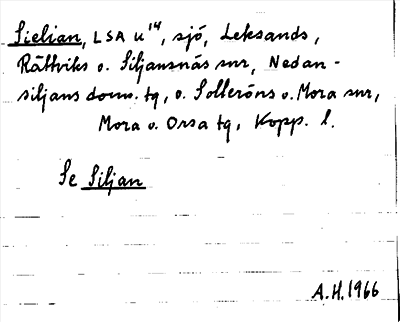 Sielian, LSA u¹⁴, sjö, Leksands,
Rättviks o. Siljansnäs snr, Nedan-
siljans doms. tg, o. Solleröns o. Mora snr,
Mora o. Orsa tg, Kopp. l.
Se Siljan
A.H. 1966